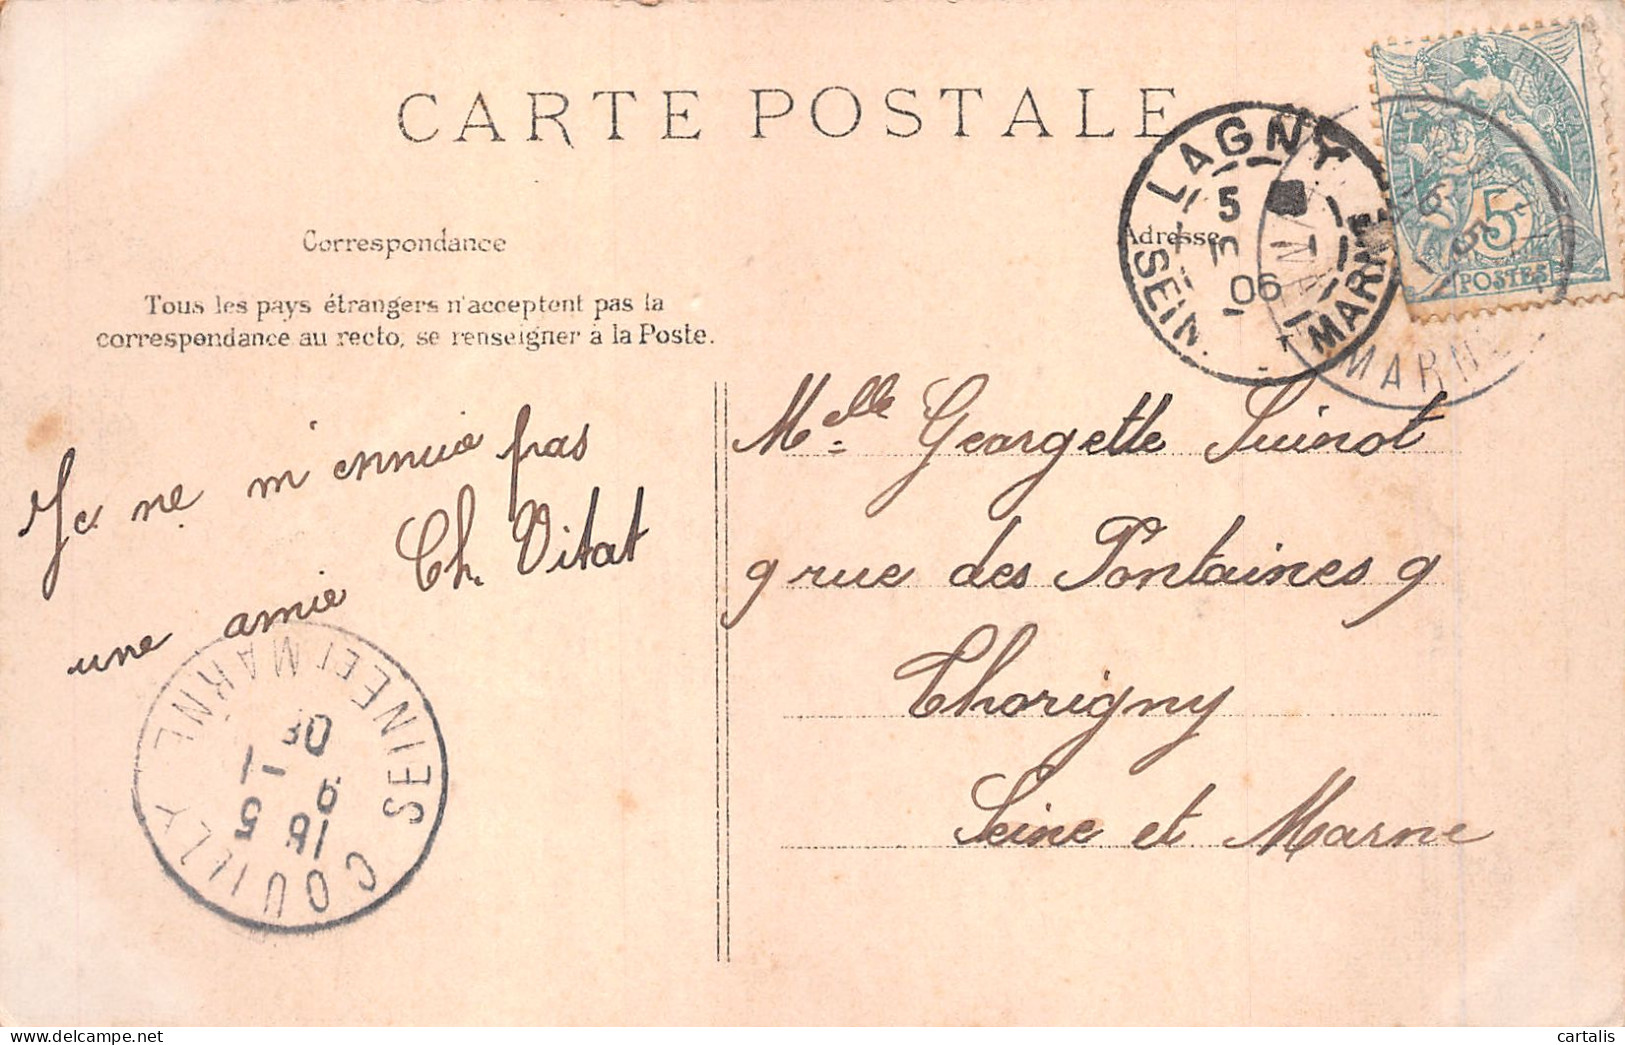 CARTE POSTALE
Correspondance
Adresse
Tous les pays étrangers n'acceptent pas la
correspondance au recto, se renseigner à la Poste.
Je ne m'ennuie pas
une amie Ch. Vitat
Melle Georgette Suinot
9 rue des Fontaines 9
Thorigny
Seine et Marne
LAGNY
5
06
MARNE
5
POSTES
MARNE
COUILLY
SEINE ET MARNE
cartalis